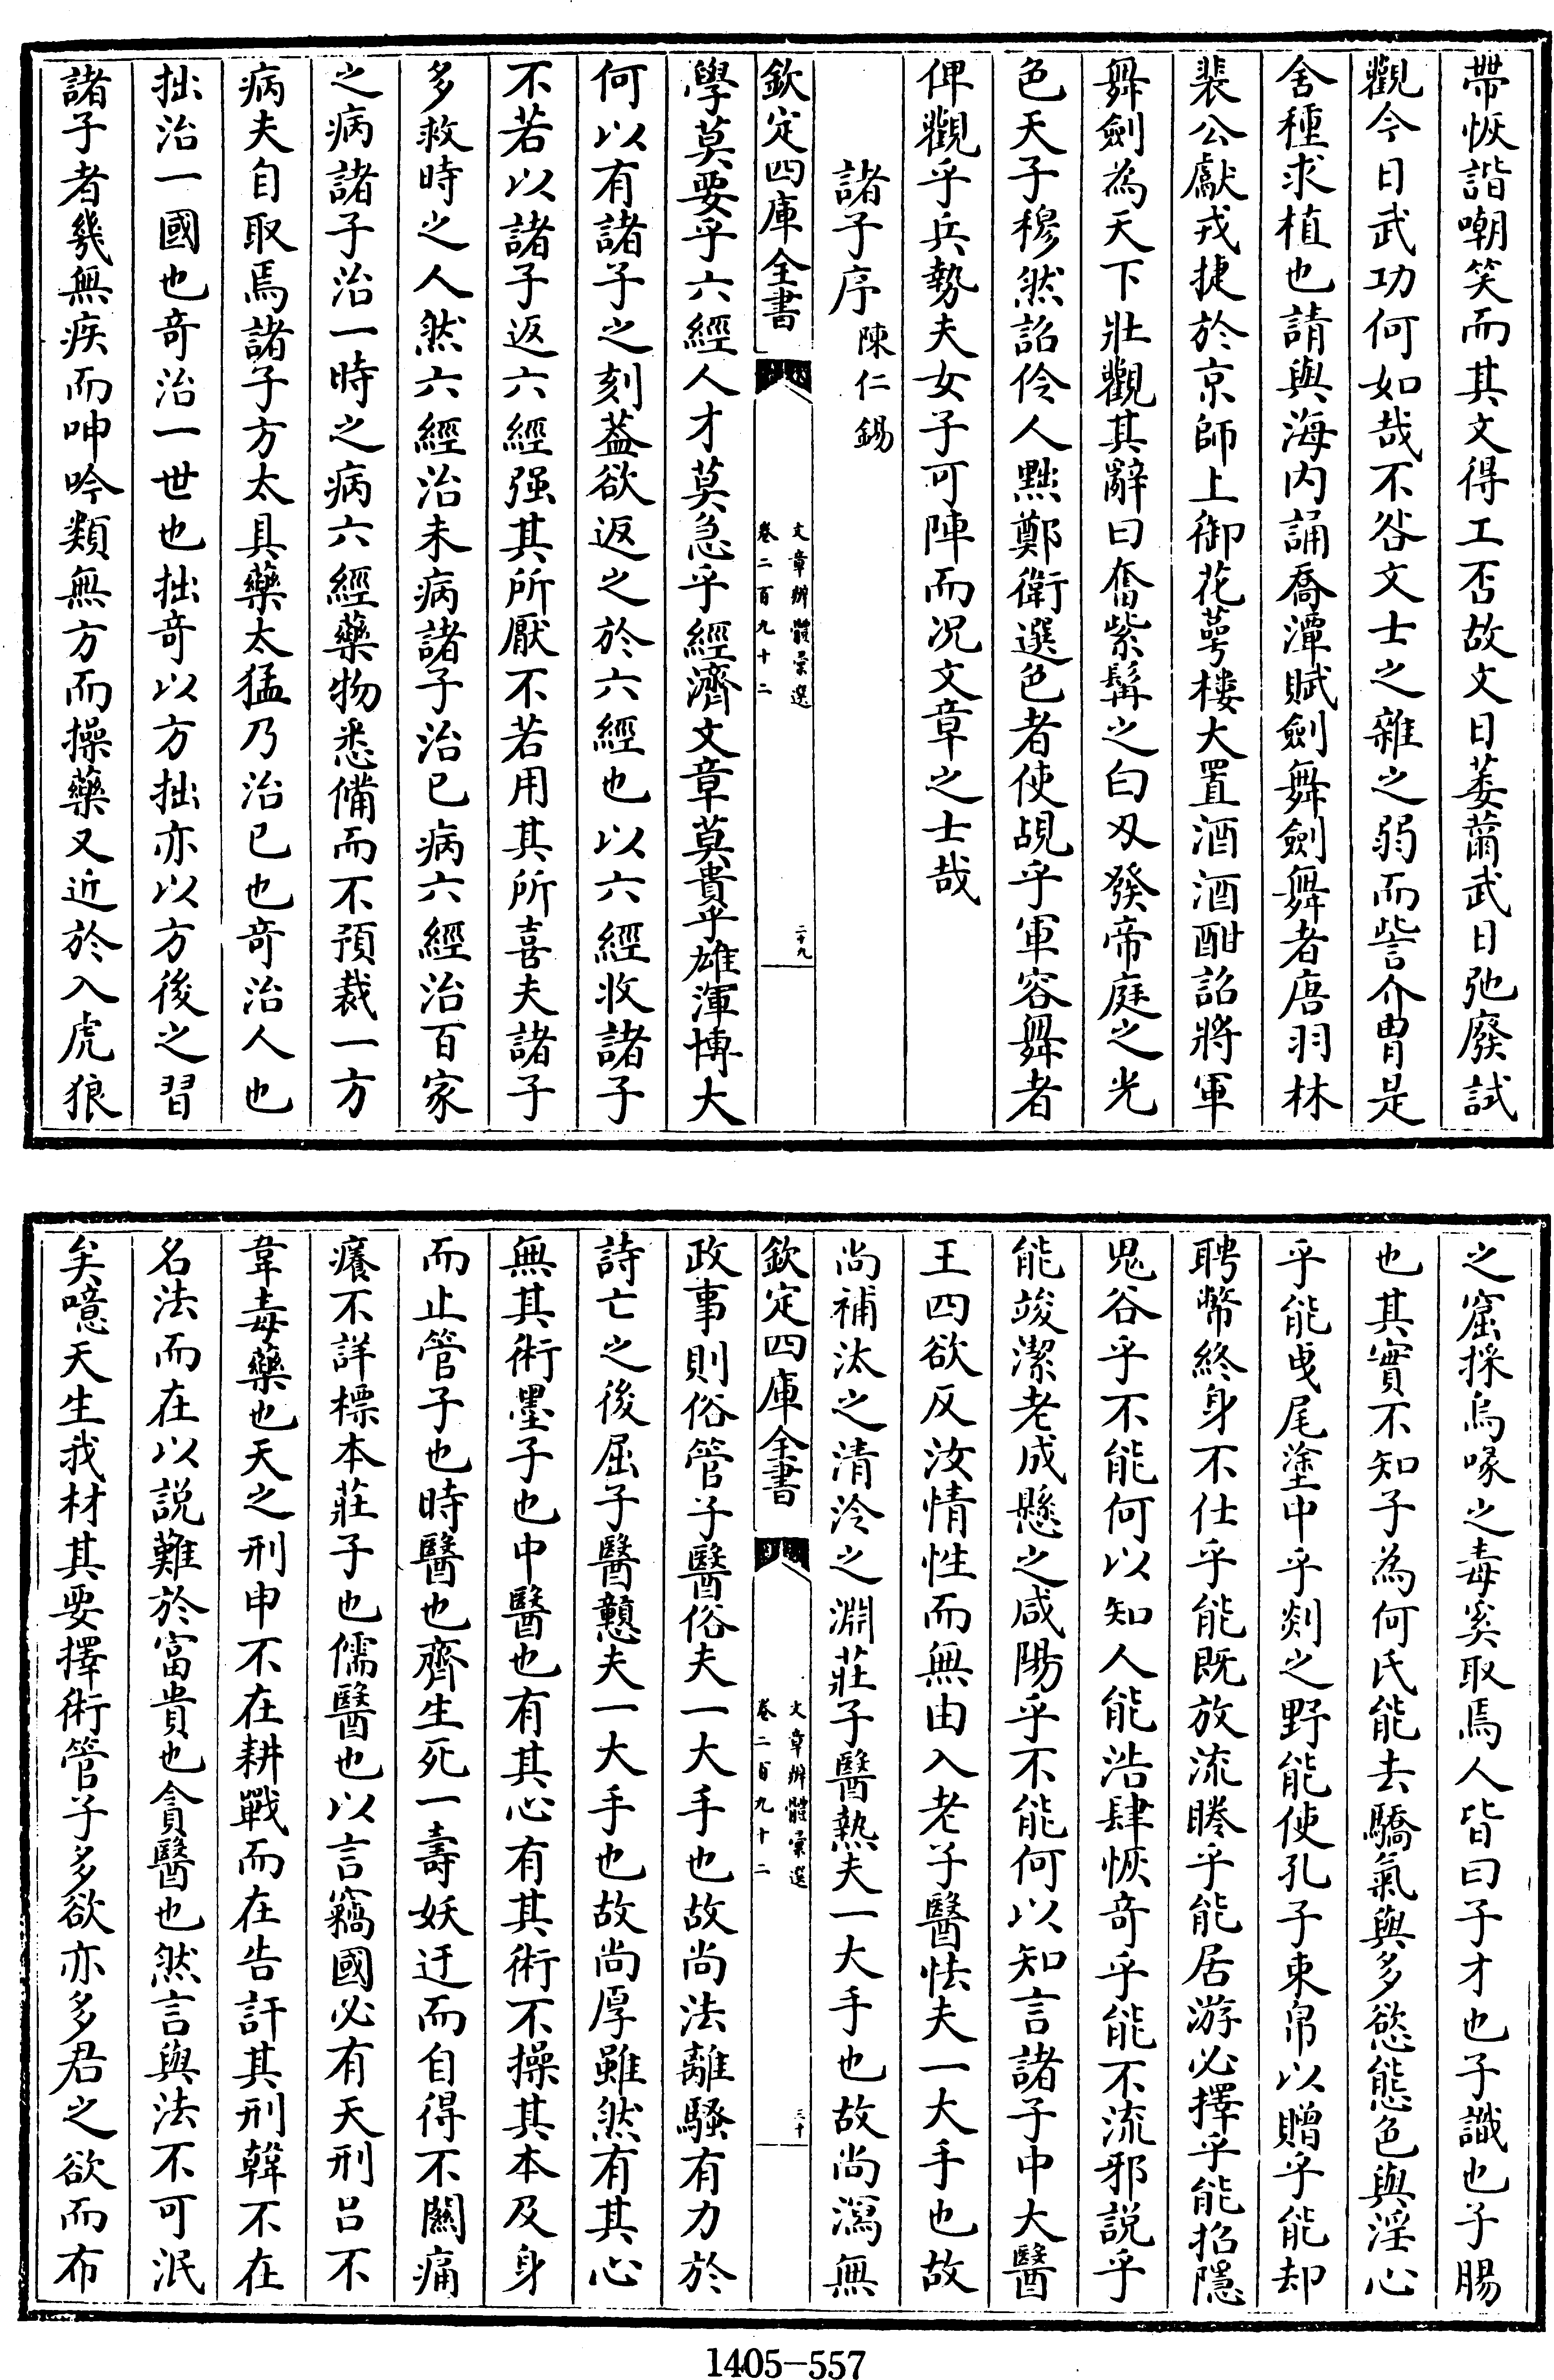 帶恢諧嘲笑而其文得工否故文日萎薾武日弛廢試
觀今日武功何如哉不咎文士之雜之弱而訾介胄是
舍種求植也請與海内誦喬潭賦劍舞劍舞者唐羽林
裴公獻戎捷於京師上御花萼樓大置酒酒酣詔將軍
舞劍為天下壯觀其辭曰奮紫髯之白刃發帝庭之光
色天子穆然詔伶人點鄭衛選色者使覘乎軍容舞者
俾觀乎兵勢夫女子可陣而况文章之士哉
諸子序 陳仁錫
欽定四庫全書 文章辨體彙選 卷二百九十二 二十九
學莫要乎六經人才莫急乎經濟文章莫貴乎雄渾博大
何以有諸子之刻葢欲返之於六經也以六經收諸子
不若以諸子返六經强其所厭不若用其所喜夫諸子
多救時之人然六經治未病諸子治已病六經治百家
之病諸子治一時之病六經藥物悉備而不預裁一方
病夫自取焉諸子方太具藥太猛乃治已也竒治人也
拙治一國也竒治一世也拙竒以方拙亦以方後之習
諸子者幾無疾而呻吟類無方而操藥又近於入虎狼
之窟採烏喙之毒奚取焉人皆曰子才也子識也子腸
也其實不知子為何氏能去驕氣與多慾態色與淫心
乎能曳尾塗中乎乎剡之野能使孔子束帛以贈乎能却
聘幣終身不仕乎能既放流睠乎能居游必擇乎能招隱
鬼谷乎不能何以知人能浩肆恢竒乎能不流邪説乎
能竣潔老成懸之咸陽乎不能何以知言諸子中大醫
王四欲反汝情性而無由入老子醫怯夫一大手也故
尚補汰之清泠之淵莊子醫熱夫一大手也故尚瀉無
欽定四庫全書 文章辨體彙選 卷二百九十二 三十
政事則俗管子醫俗夫一大手也故尚法離騷有力於
詩亡之後屈子醫戅夫一大手也故尚厚雖然有其心
無其術墨子也中醫也有其心有其術不操其本及身
而止管子也時醫也齊生死一壽妖迂而自得不關痛
癢不詳標本莊子也儒醫也以言竊國必有天刑吕不
韋毒藥也天之刑申不在耕戰而在告訐其刑韓不在
名法而在以説難於富貴也貪醫也然言與法不可泯
矣噫天生我材其要擇術管子多欲亦多君之欲而布
1405-557